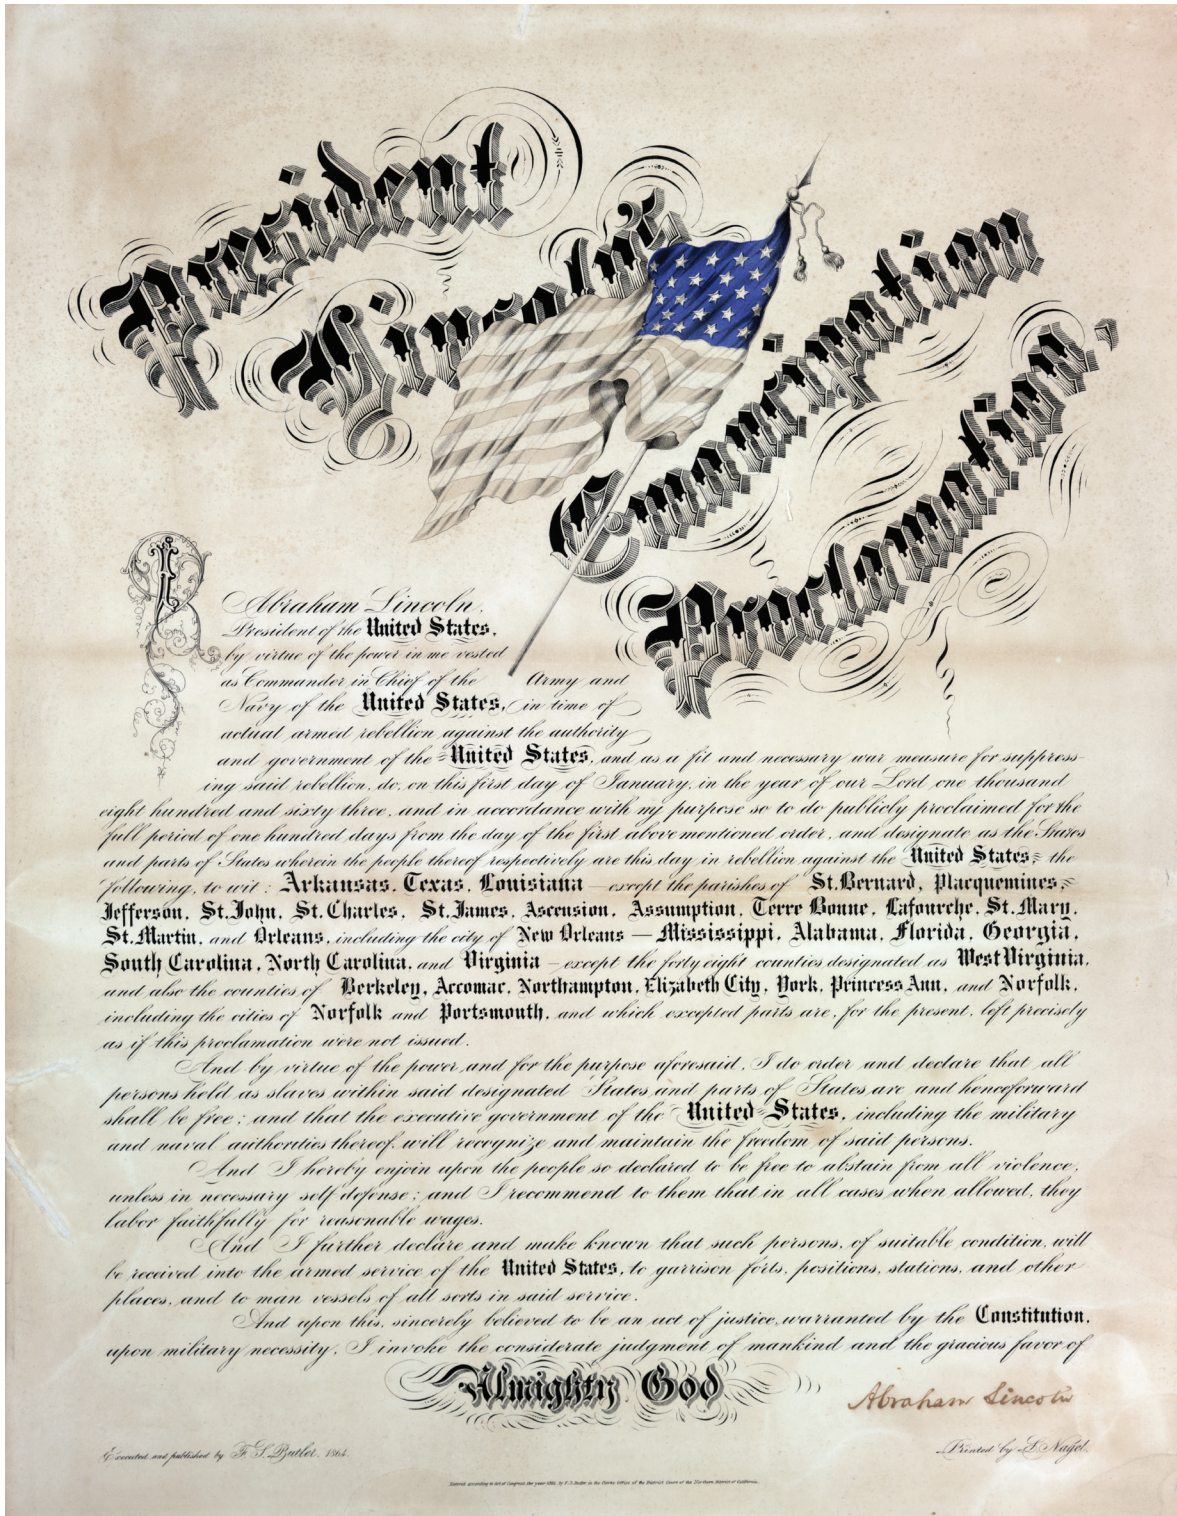 President
Lincoln's
Emancipation
Proclamation.
I Abraham Lincoln.
President of the United States,
by virtue of the power in me vested
as Commander in Chief of the Army and
Navy of the United States, in time of
actual armed rebellion against the authority
and government of the United States, and as a fit and necessary war measure for suppress-
ing said rebellion, do, on this first day of January, in the year of our Lord one thousand
eight hundred and sixty three, and in accordance with my purpose so to do publicly proclaimed for the
full period of one hundred days from the day of the first above mentioned order, and designate as the States
and parts of States wherein the people thereof respectively are this day in rebellion against the United States, the
following, to wit: Arkansas, Texas, Louisiana – except the parishes of St. Bernard, Placquemines,
Jefferson, St. John, St. Charles, St. James, Ascension, Assumption, Terre Bonne, Lafourche, St. Mary,
St. Martin, and Orleans, including the city of New Orleans — Mississippi, Alabama, Florida, Georgia,
South Carolina, North Carolina, and Virginia – except the forty eight counties designated as West Virginia,
and also the counties of Berkeley, Accomac, Northampton, Elizabeth City, York, Princess Ann, and Norfolk,
including the cities of Norfolk and Portsmouth, and which excepted parts are, for the present, left precisely
as if this proclamation were not issued.
And by virtue of the power, and for the purpose aforesaid, I do order and declare that all
persons held as slaves within said designated States and parts of States are and henceforward
shall be free; and that the executive government of the United States, including the military
and naval authorities thereof, will recognize and maintain the freedom of said persons.
And I hereby enjoin upon the people so declared to be free to abstain from all violence,
unless in necessary self defense; and I recommend to them that in all cases when allowed, they
labor faithfully for reasonable wages.
And I further declare and make known that such persons, of suitable condition, will
be received into the armed service of the United States, to garrison forts, positions, stations, and other
places, and to man vessels of all sorts in said service.
And upon this, sincerely believed to be an act of justice, warranted by the Constitution,
upon military necessity, I invoke the considerate judgment of mankind and the gracious favor of
Almighty God
Abraham Lincoln
Executed and published by F. S. Butler, 1864.
Printed by L. Nagel.
Entered according to Act of Congress, the year 1864, by F. S. Butler in the Clerks Office of the District Court of the Northern District of California.